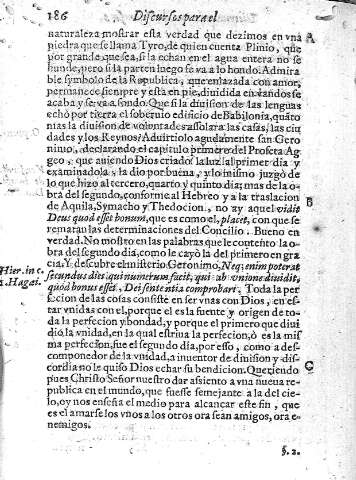 186 Discursos para el
naturaleza mostrar esta verdad que dezimos en vna A
piedra que se llama Tyro, de quien cuenta Plinio, que
por grande que sea, si la echan en el agua entera no se
hunde, pero si la parten luego se va a lo hondo. Admira
ble symbolo de la Republica, que enlazada con amor,
permanece siempre y esta en pie, diuidida en vandos se
acaba y se va a fondo. Que si la diuision de las lenguas
echò por tierra el soberuio edificio de Babilonia, quãto
mas la diuision de voluntades assolarà las casas, las ciu
dades y los Reynos? Aduirtiolo agudamente san Gero
nimo, declarando el capitulo primero del Profeta Ag
geo, que auiendo Dios criado la luz al primer dia y
examinadola, la dio por buena, y lo mismo juzgò de
lo que hizo al tercero, quarto y quinto dia; mas de la o-
bra del segundo, conforme al Hebreo y a la traslacion B
de Aquila, Symacho y Thedocion, no ay aquel vidit
Deus quod esset bonum, que es como el, placet, con que se
remaran las determinaciones del Concilio. Bueno en
verdad. No mostro en las palabras que le contẽto la o-
bra del segundo dia, como le cayò la del primero en gra
cia. Y descubre el misterio Geronimo, Neq; enim poterat
Hier. in c. secundus dies qui numerum facit, qui ab vnione diuidit,
1. Hagai. quòd bonus esset, Dei sententia comprobari. Toda la per
fecion de las cosas consiste en ser vnas con Dios, en es-
tar vnidas con el, porque el es la fuente y origen de to-
da la perfecion y bondad, y porque el primero que diui
dio la vnidad, en la qual estriua la perfecion, ò es la mis
ma perfecion, fue el segundo dia, por esso, como a des-
componedor de la vnidad, a inuentor de diuision y dis-
cordia no le quiso Dios echar su bendicion. Queriendo C
pues Christo Señor nuestro dar assiento a vna nueua re-
publica en el mundo, que fuesse semejante a la del cie-
lo, oy nos enseña el medio para alcançar este fin, que
es el amarse los vnos a los otros ora sean amigos, ora e-
nemigos.
§. 2.